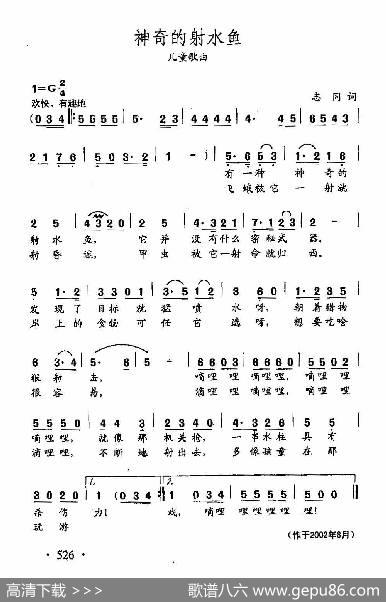 神奇的射水鱼
儿童歌曲
1=G 2/4
欢快、有趣地
志同 词
(0 3 4 5 5 5 5 5 5 3 4 4 4 4 4 4 4 5 6 5 4 3
2 1 7 6 5 5 3 2 1 1) 5 6 5 3 1 2 1 6
有一种 神奇的
飞蛾被它一射就
2 5 4 3 2 0 5 5 4 3 2 1 7 1 2 3
射水鱼, 它并没有什么密秘武器。
射昏迷, 甲虫被它一射命就归西。
5 1 2 3 0 1 2 1 3 5 1 2 3 2 1 2
发现了目标就猛喷水呀, 朝着猎物
岸上的食物可任它选呀, 想要吃啥
狠狠击, 嘀哩哩, 嘀哩哩,
很容易, 嘀哩哩, 嘀哩哩,
5 5 5 0 4 4 3 2 2 2 0 3 4 4 3
嘀哩哩, 就像那机关枪, 一串水柱具有
嘀哩哩, 不断地射出去, 多像孩童在那
3 0 2 0 1 (0 3 4) 1 0 5 5 5 5 5 5 1 0
杀伤力! 戏, 嘀哩哩哩哩哩!
玩游
(作于2002年8月)
· 526 ·
高清下载 >> 歌谱八六 www.gepu86.com